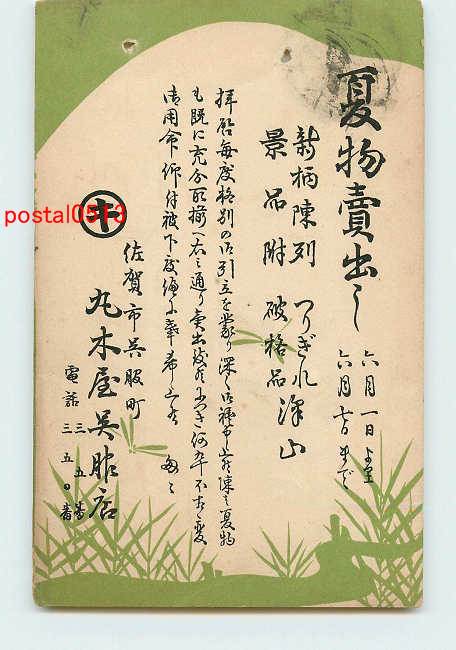 夏物賣出し
六月一日より
六月七日まで
新柄陳列 つりぎれ澤山
景品附 破格品
拝啓毎度格別の御引立を蒙り深く御禮申上候陳者夏物
も既に充分取揃へ右之通り賣出致候につき何卒不相変
御用命仰付被下度偏に奉希上候 匆々
佐賀市呉服町
キ
丸木屋呉服店
電話 三五番
三五〇番
postal0513